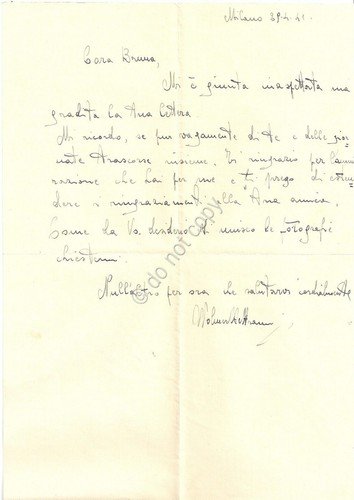 Milano 29.4.41.
Cara Bruna,
Mi è giunta inaspettata ma
gradita la tua lettera.
Mi ricordo, se pur vagamente di te e delle gior=
nate trascorse insieme. Ti ringrazio per l'ammi
razione che hai per me e ti prego di esten
dere i ringraziamenti alla tua amica.
Come da Vs. desiderio Vi unisco le fotografie
chiestemi.
Null'altro per ora che salutarvi cordialmente
© do not copy